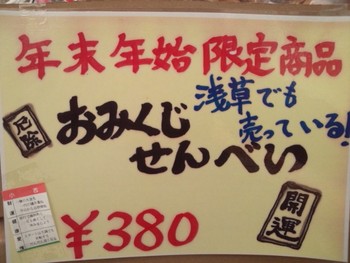 年末年始限定商品
浅草でも
売っている!
厄除
おみくじ
せんべい
開運
¥380